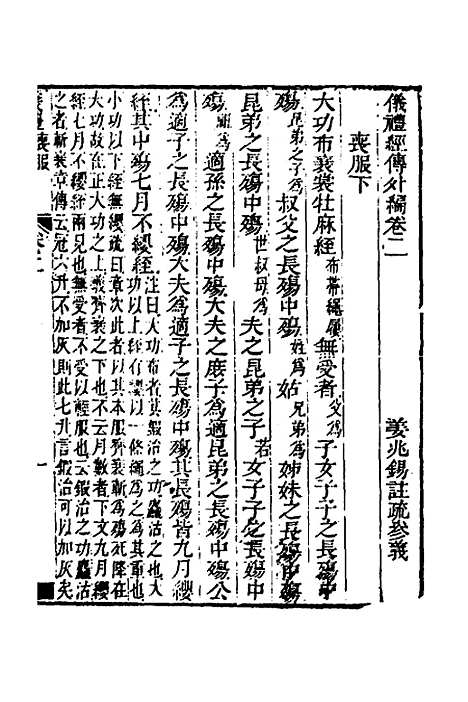 儀禮經傳外編卷二
姜兆錫註疏參義
喪服下
大功布衰裳牡麻絰布帶繩屨無受者父為子女子子之長殤中
殤昆弟之子為叔父之長殤中殤姪為姑兄弟為姊妹之長殤中殤
昆弟之長殤中殤世叔母為夫之昆弟之子若女子子之長殤中
殤祖為適孫之長殤中殤大夫之庶子為適昆弟之長殤中殤公
為適子之長殤中殤大夫為適子之長殤中殤其長殤皆九月纓
絰其中殤七月不纓絰注曰大功布者其鍛治之功麤沽之也大
功以上絰有纓以一條繩為之為其重也
小功以下絰無纓疏曰章次此者以其本服齊衰斬為殤死降在
大功故在正大功之上義齊衰之下也不云月數者下文九月纓
絰七月不纓絰兩見也無受者不受以輕服也云鍛治之功麤沽
之者斬衰章傳云冠六升不加灰則此七升言鍛治可以加灰矣
儀禮喪服
卷二
一